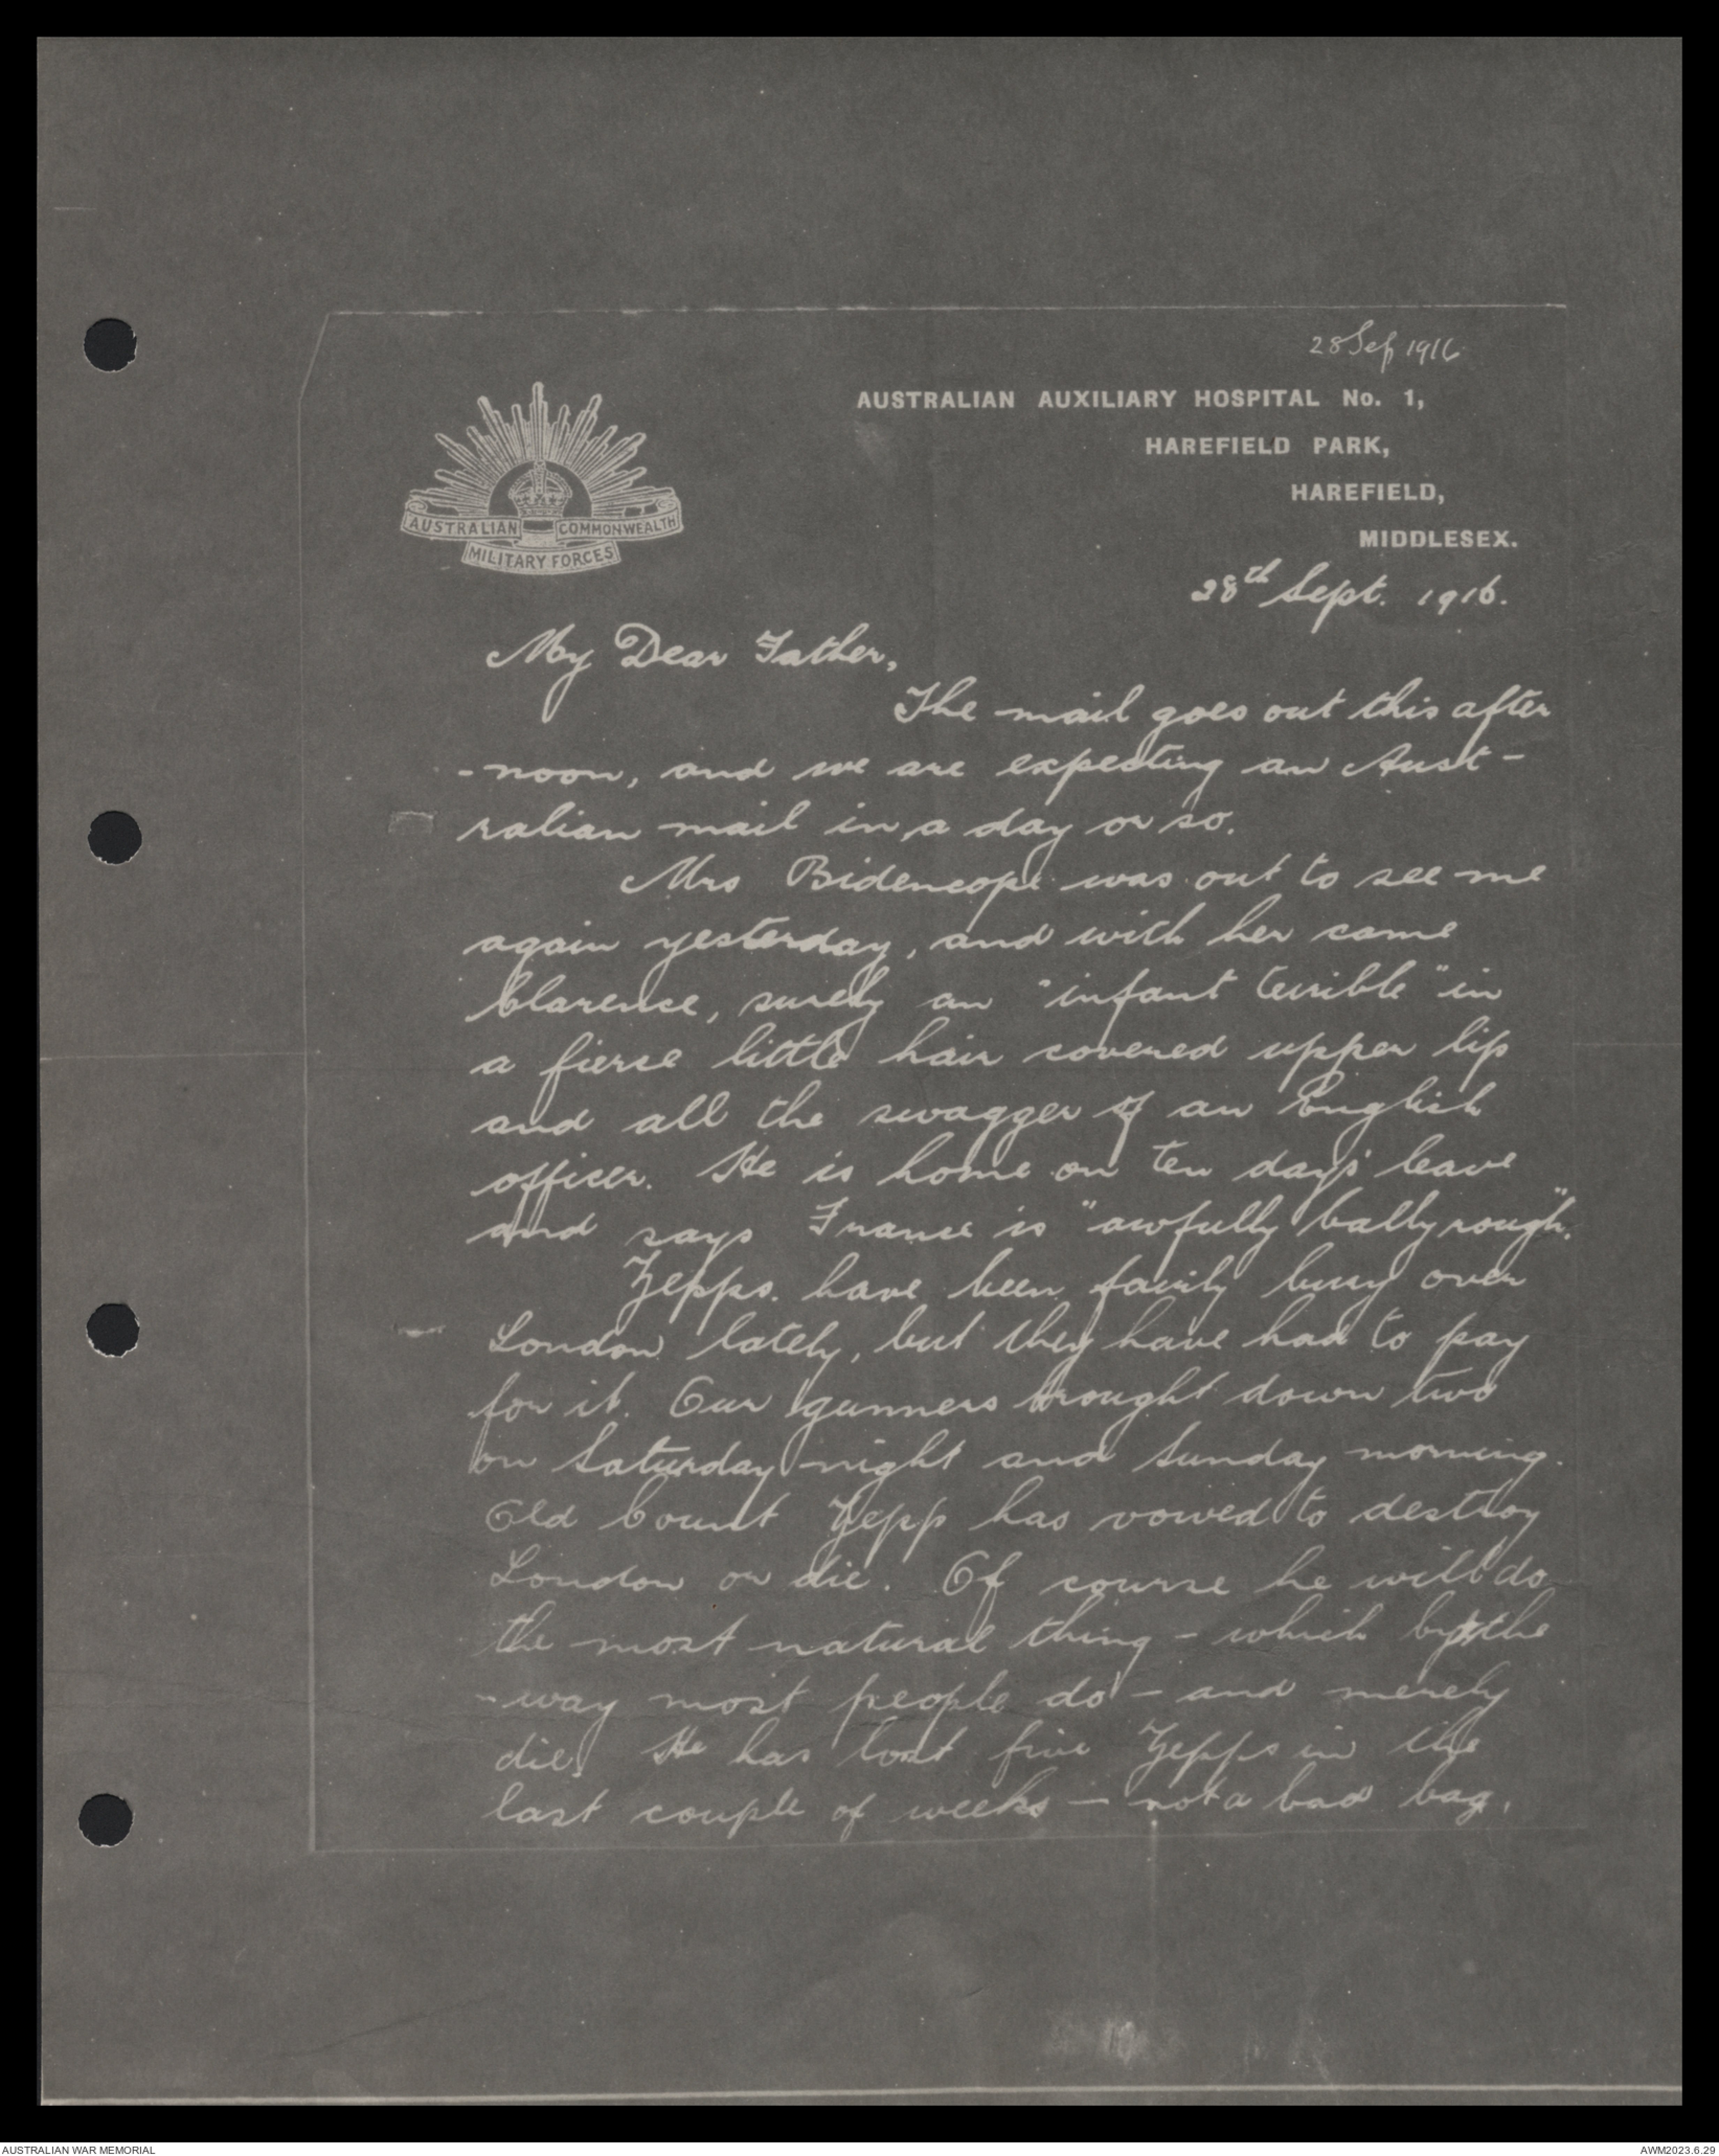 28 Sep 1916
AUSTRALIAN AUXILIARY HOSPITAL No. 1,
HAREFIELD PARK,
HAREFIELD,
MIDDLESEX.
AUSTRALIAN COMMONWEALTH
MILITARY FORCES
28th Sept. 1916.
My Dear Father,
The mail goes out this after
-noon, and we are expecting an Aust-
ralian mail in a day or so.
Mrs Bidencope was out to see me
again yesterday, and with her came
Clarence, surely an "infant terrible" in
a fierce little hair covered upper lip
and all the swagger of an English
officer. He is home on ten days' leave
and says France is "awfully bally rough".
Zepps. have been fairly busy over
London lately, but they have had to pay
for it. Our gunners brought down two
on Saturday night and Sunday morning.
Old Count Zepp has vowed to destroy
London or die. Of course he will do
the most natural thing - which by the
-way most people do - and merely
die. He has lost five Zepps in the
last couple of weeks - not a bad bag.
AUSTRALIAN WAR MEMORIAL
AWM2023.6.29